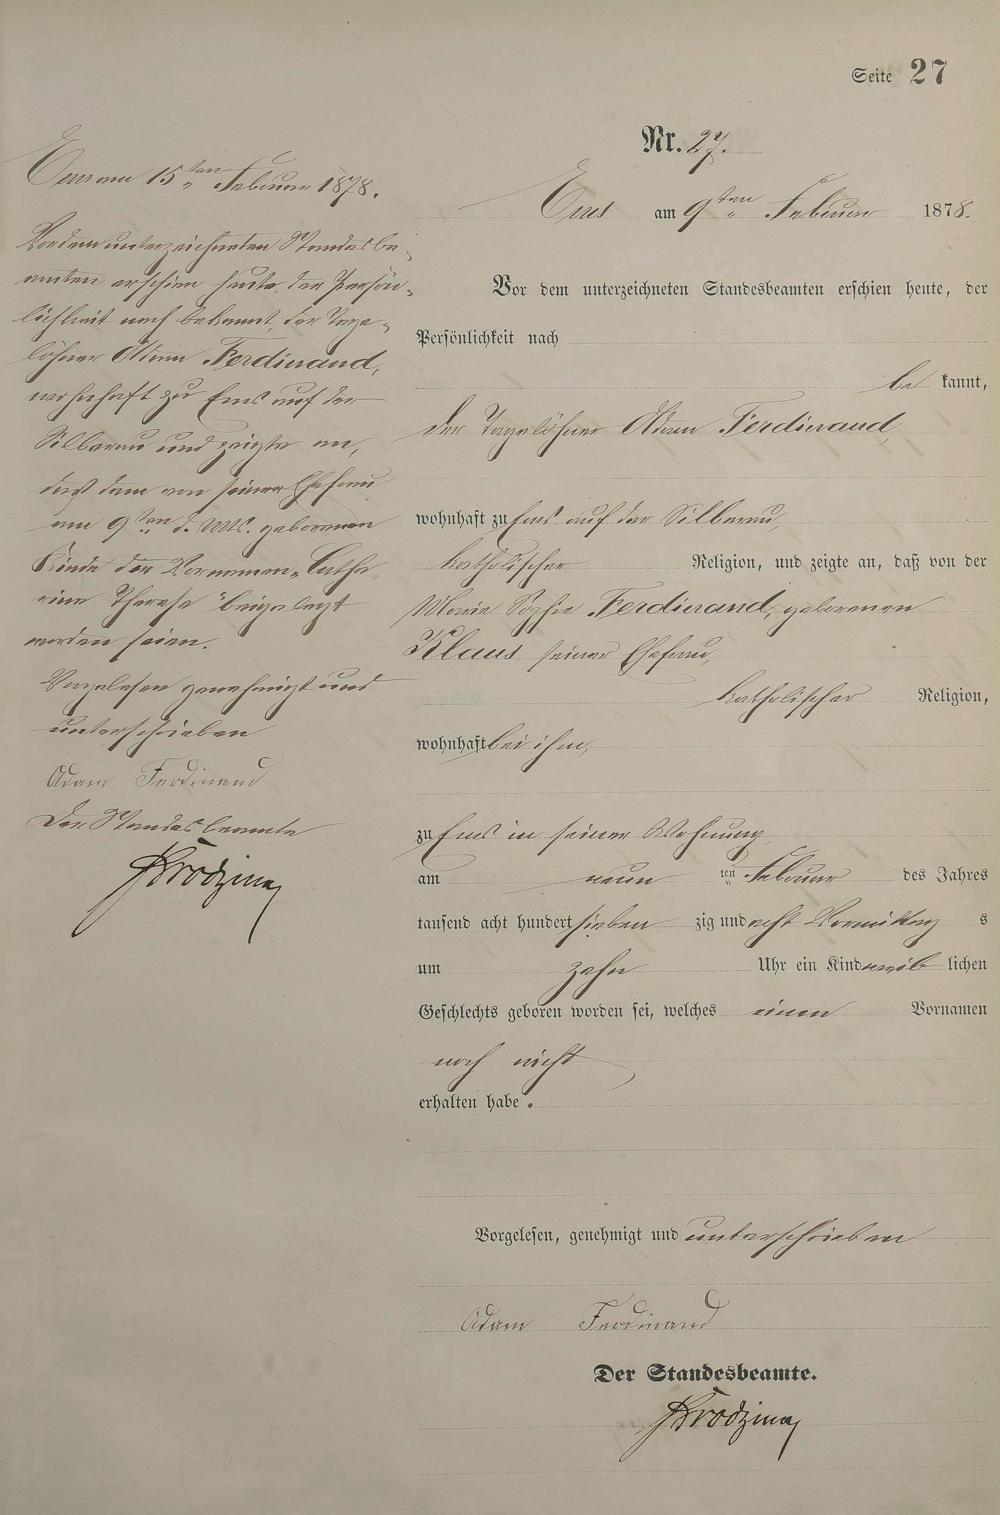 Seite 27
Nr. 27.
Ems am 9ten Februar 1878.
Vor dem unterzeichneten Standesbeamten erschien heute, der
Persönlichkeit nach
be kannt,
der Tagelöhner Adam Ferdinand,
wohnhaft zu Ems auf der Silberau,
katholischer Religion, und zeigte an, daß von der
Marie Sophie Ferdinand, geborenen
Klaus, seiner Ehefrau,
katholischer Religion,
wohnhaft bei ihm,
zu Ems in seiner Wohnung
am neun ten Februar des Jahres
tausend acht hundert sieben zig und acht Vormittag s
um zehn Uhr ein Kind weib lichen
Geschlechts geboren worden sei, welches einen Vornamen
noch nicht
erhalten habe.
Vorgelesen, genehmigt und unterschrieben
Adam Ferdinand
Der Standesbeamte.
Ems am 15ten Februar 1878.
Vor dem unterzeichneten Standesbe-
amten erschien heute, der Persön-
lichkeit nach bekannt, der Tage-
löhner Adam Ferdinand,
wohnhaft zu Ems auf der
Silberau und zeigte an,
daß dem von seiner Ehefrau
am 9ten d. Mts. geborenen
Kinde die Vornamen „Catha-
rine Therese" beigelegt
worden seien.
Vorgelesen genehmigt und
unterschrieben
Adam Ferdinand
Der Standesbeamte